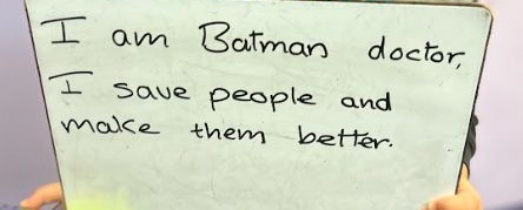 I am Batman doctor,
I save people and
make them better.